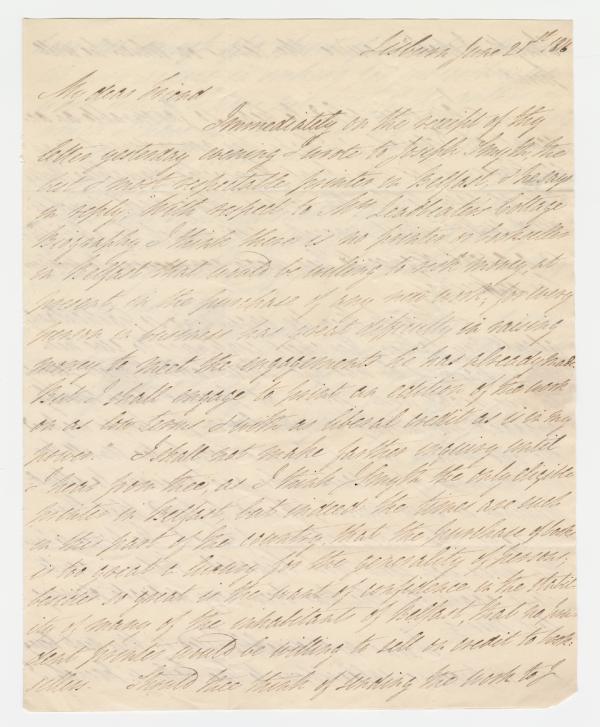 Lisburn June 21st 1816
My dear friend
Immediately on the receipt of thy
letter yesterday evening I wrote to Joseph Smyth, the
best & most respectable printer in Belfast, & he says
in reply, "With respect to Mrs Leadbeater's Cottage
Biography I think there is no printer or bookseller
in Belfast that would be willing to risk money, at
present, in the purchase of any new work, for every
person in business has great difficulty in raising
money to meet the engagements he has already made.
But I shall engage to print an edition of the work
on as low terms & with as liberal credit as is in my
power." I shall not make farther inquiry until
I hear from thee, as I think J Smyth the only eligible
printer in Belfast but indeed the times are such
in this part of the country, that the purchase of books
is too great a luxury for the generality of persons,
besides so great is the want of confidence in the stabil-
ity of many of the inhabitants of Belfast, that no pru-
dent printer would be willing to sell on credit to book-
sellers. Should thee think of sending the work to J